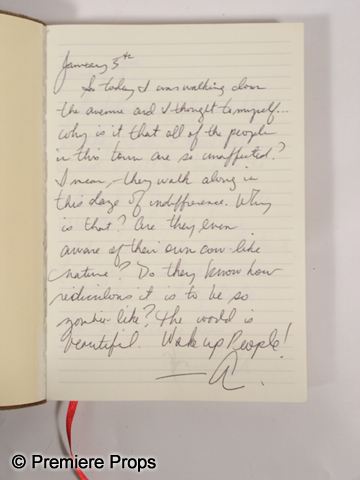 January 3rd
So today I was walking down
the avenue and I thought to myself...
why is it that all of the people
in this town are so unaffected?
I mean, - they walk along in
this daze of indifference. Why
is that? Are they even
aware of their own cow-like
nature? Do they know how
rediculous it is to be so
zombie-like? The world is
beautiful. Wake up People!
— A.
© Premiere Props